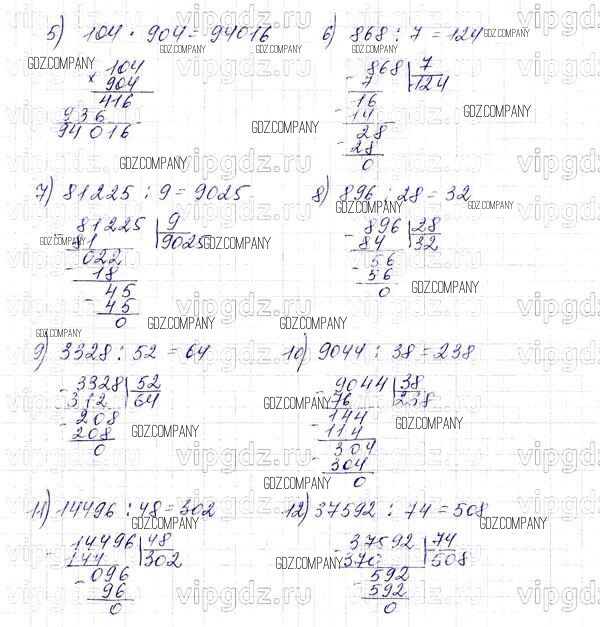 5) 104 · 904 = 94016
× 104
904
416
936
94016
6) 868 : 7 = 124
- 868 | 7
7 | 124
- 16
14
- 28
28
0
7) 81225 : 9 = 9025
- 81225 | 9
81 | 9025
- 022
18
- 45
45
0
8) 896 : 28 = 32
- 896 | 28
84 | 32
- 56
56
0
9) 3328 : 52 = 64
- 3328 | 52
312 | 64
- 208
208
0
10) 9044 : 38 = 238
- 9044 | 38
76 | 238
- 144
114
- 304
304
0
11) 14496 : 48 = 302
- 14496 | 48
144 | 302
- 096
96
0
12) 37592 : 74 = 508
- 37592 | 74
370 | 508
- 592
592
0
GDZ.COMPANY
vipgdz.ru